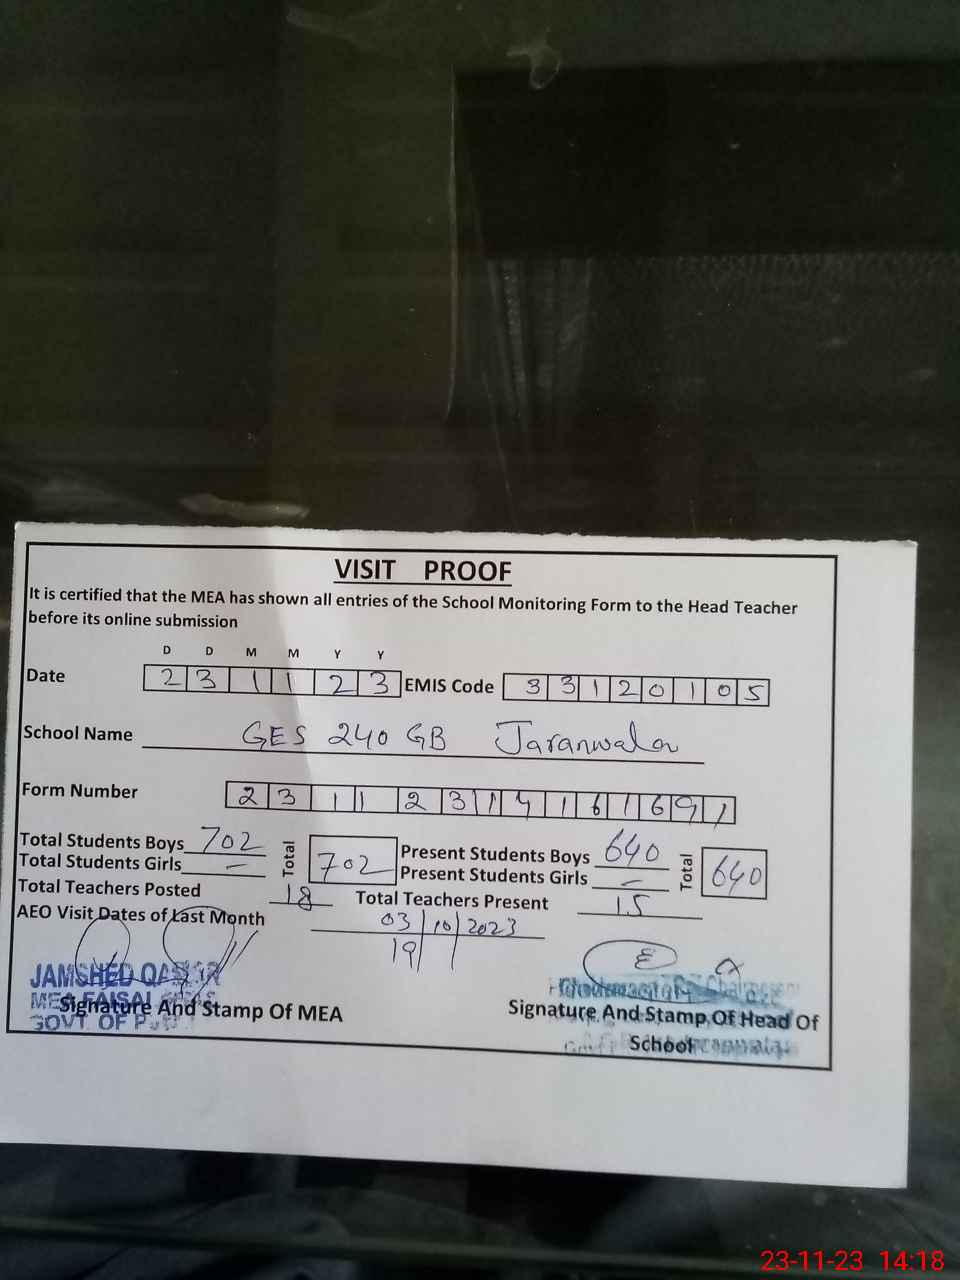 VISIT PROOF
It is certified that the MEA has shown all entries of the School Monitoring Form to the Head Teacher
before its online submission
D D M M Y Y
Date 23 11 23 EMIS Code 33120105
School Name GES 240 GB Jaranwala
Form Number 23 11 23
Total Students Boys 702 Total 702 Present Students Boys 640 Total 640
Total Students Girls – Present Students Girls –
Total Teachers Posted 18 Total Teachers Present 15
AEO Visit Dates of Last Month 03/10/2023
19/ /
JAMSHED
MEA FAISAL
GOVT. OF
Signature And Stamp Of MEA
Signature And Stamp Of Head Of
School
23-11-23 14:18